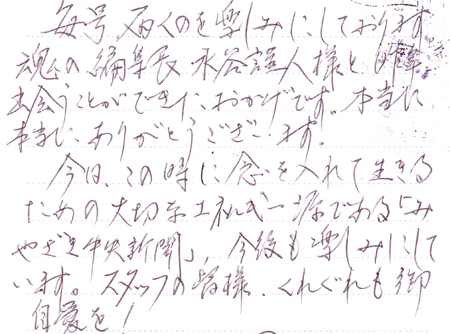 毎号、届くのを楽しみにしております。
魂の編集長 水谷謹人様と
出会うことができた、おかげです。本当に
本当に、ありがとうございます。
今は、この時に念を入れて生きる
ための大切なエネルギー源である「み
やざき中央新聞」、今後も楽しみにして
います。スタッフの皆様、くれぐれも御
自愛を!